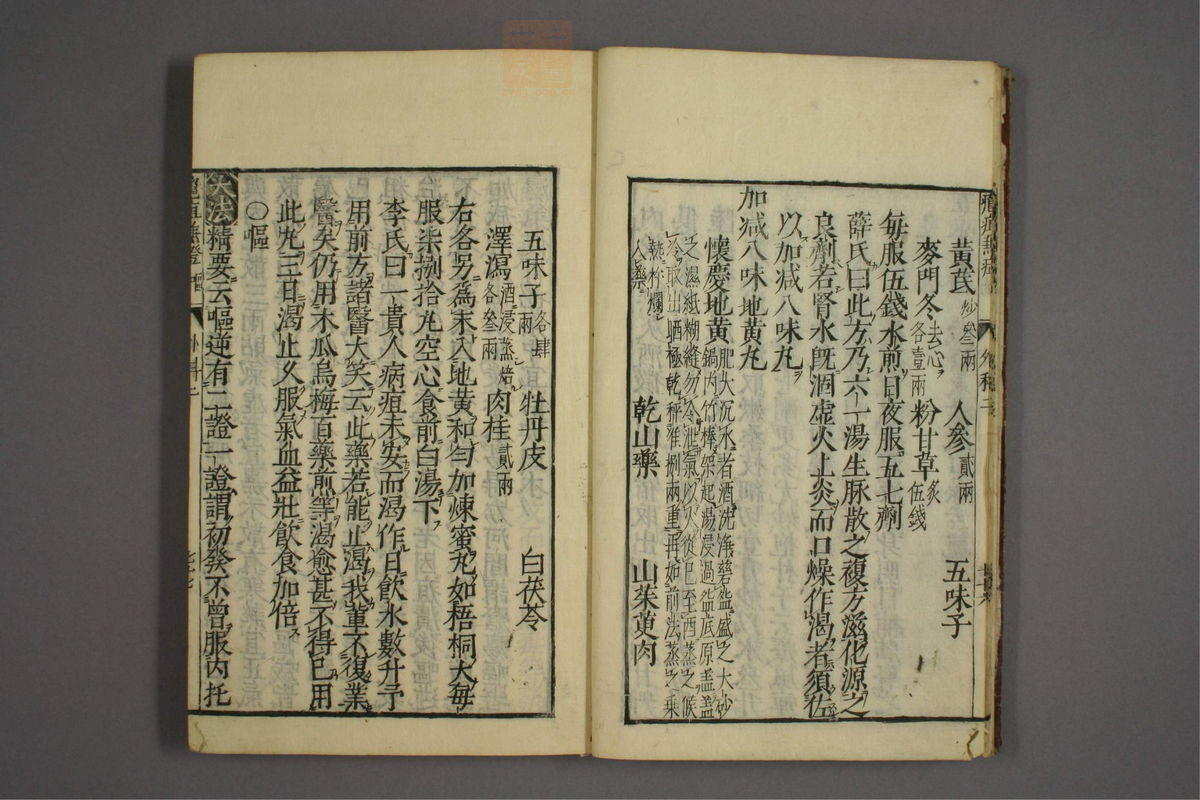 黄芪炒叁兩 人參貳兩 五味子
麥門冬去心各壹兩 粉甘草炙伍錢
每服伍錢水煎日夜服五七劑
薛氏曰此方乃六一湯生脉散之複方滋化源之
良劑若腎水既涸虛火上炎而口燥作渴者須佐
以加减八味丸
加减八味地黄丸
懷慶地黄肥大沉水者酒洗淨磁盆盛之大砂
鍋内竹棒架起湯浸過盆底原盖盖
之濕紙糊縫勿冷泄氣以火從巳至酉蒸之候
冷取出晒極乾秤准捌兩重再如前法蒸之乗
熱杵爛
入藥 乾山藥 山茱萸肉
五味子各肆兩 牡丹皮 白茯苓
澤瀉酒浸蒸焙各叁兩 肉桂貳兩
右各另爲末入地黄和匀加煉蜜丸如梧桐大每
服柒捌拾丸空心食前白湯下
李氏曰一貴人病疽未安而渴作日飲水數升予
用前方諸醫大笑云此藥若能止渴我輩不復業
醫矣仍用木瓜烏梅百藥煎等渴愈甚不得已用
此丸三日渴止久服氣血益壯飲食加倍
〇嘔
精要云嘔逆有二證一證謂初發不曾服内托